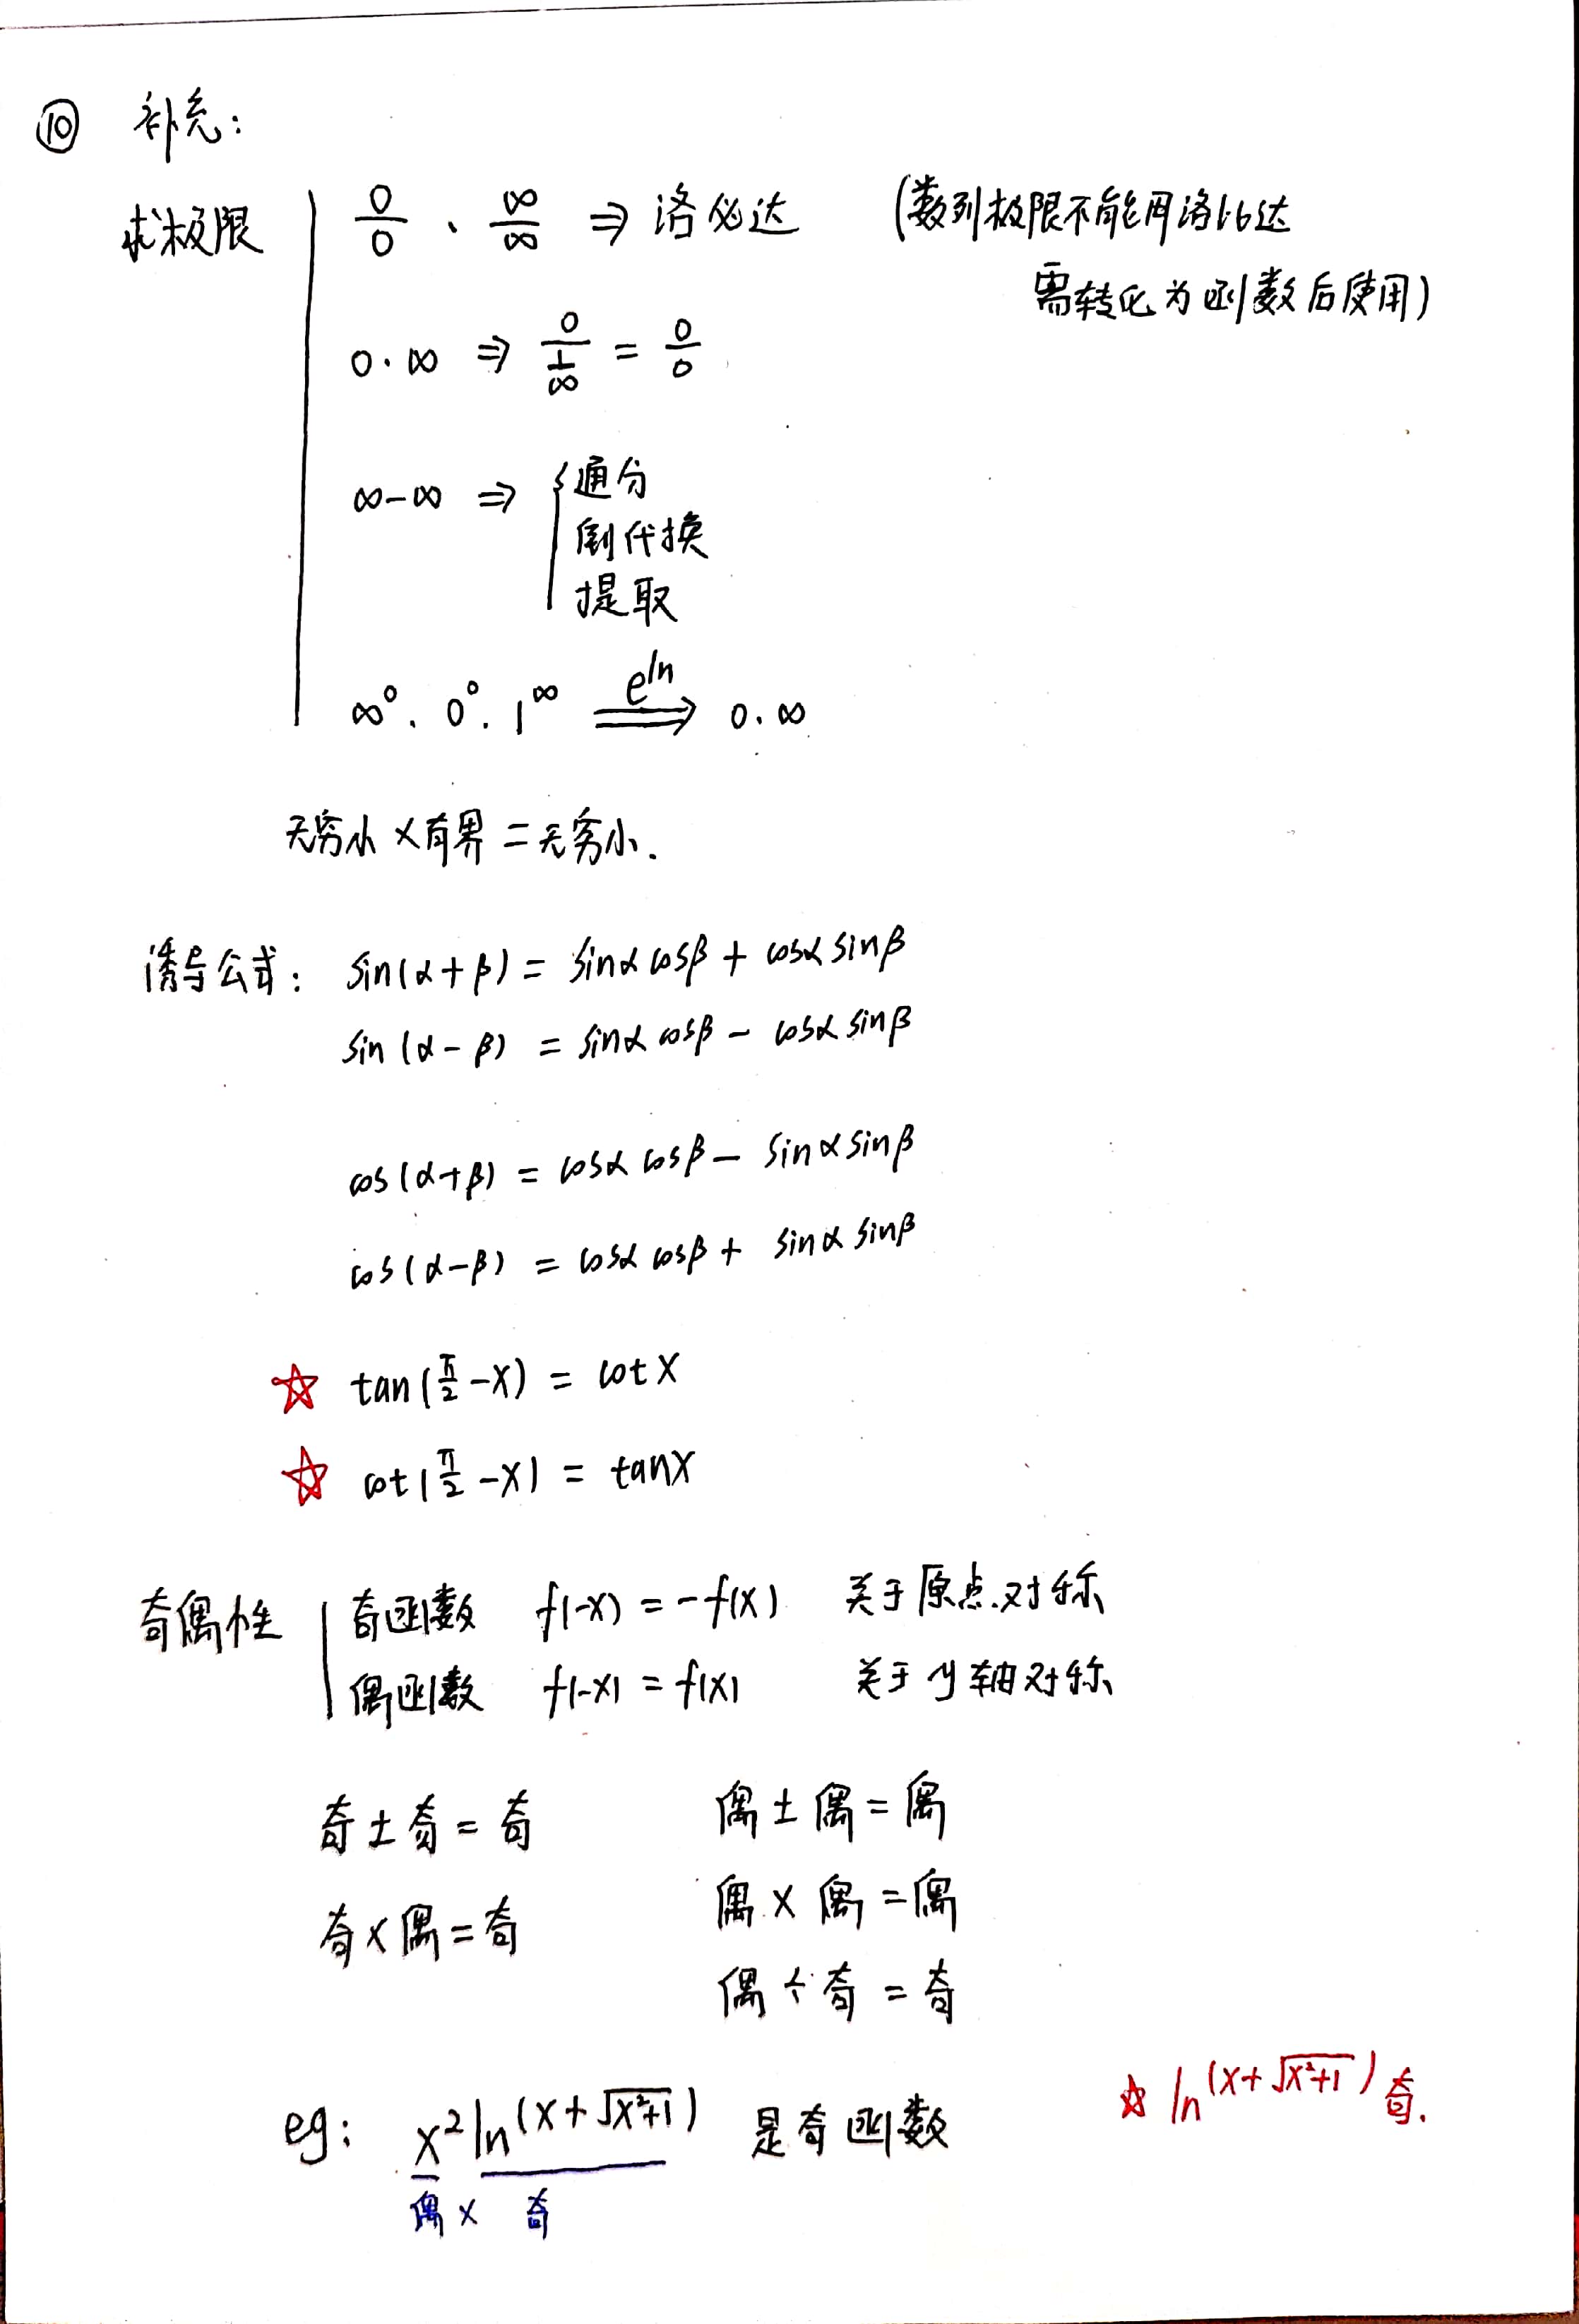 ⑩ 补充:
求极限 0/0 、 ∞/∞ ⇒ 洛必达 (数列极限不能用洛比达
需转化为函数后使用)
0·∞ ⇒ 0/(1/∞) = 0/0
∞-∞ ⇒ { 通分
倒代换
提取
∞⁰. 0⁰. 1^∞ =e^ln⇒ 0·∞
无穷小×有界=无穷小.
诱导公式: sin(α+β) = sinαcosβ + cosαsinβ
sin(α-β) = sinαcosβ - cosαsinβ
cos(α+β) = cosαcosβ - sinαsinβ
cos(α-β) = cosαcosβ + sinαsinβ
☆ tan(π/2-x) = cotx
☆ cot(π/2-x) = tanx
奇偶性 奇函数 f(-x) = -f(x) 关于原点对称
偶函数 f(-x) = f(x) 关于y轴对称
奇±奇=奇 偶±偶=偶
奇×偶=奇 偶×偶=偶
偶÷奇=奇
eg: x²ln(x+√(x²+1)) 是奇函数 ☆ ln(x+√(x²+1)) 奇.
偶× 奇